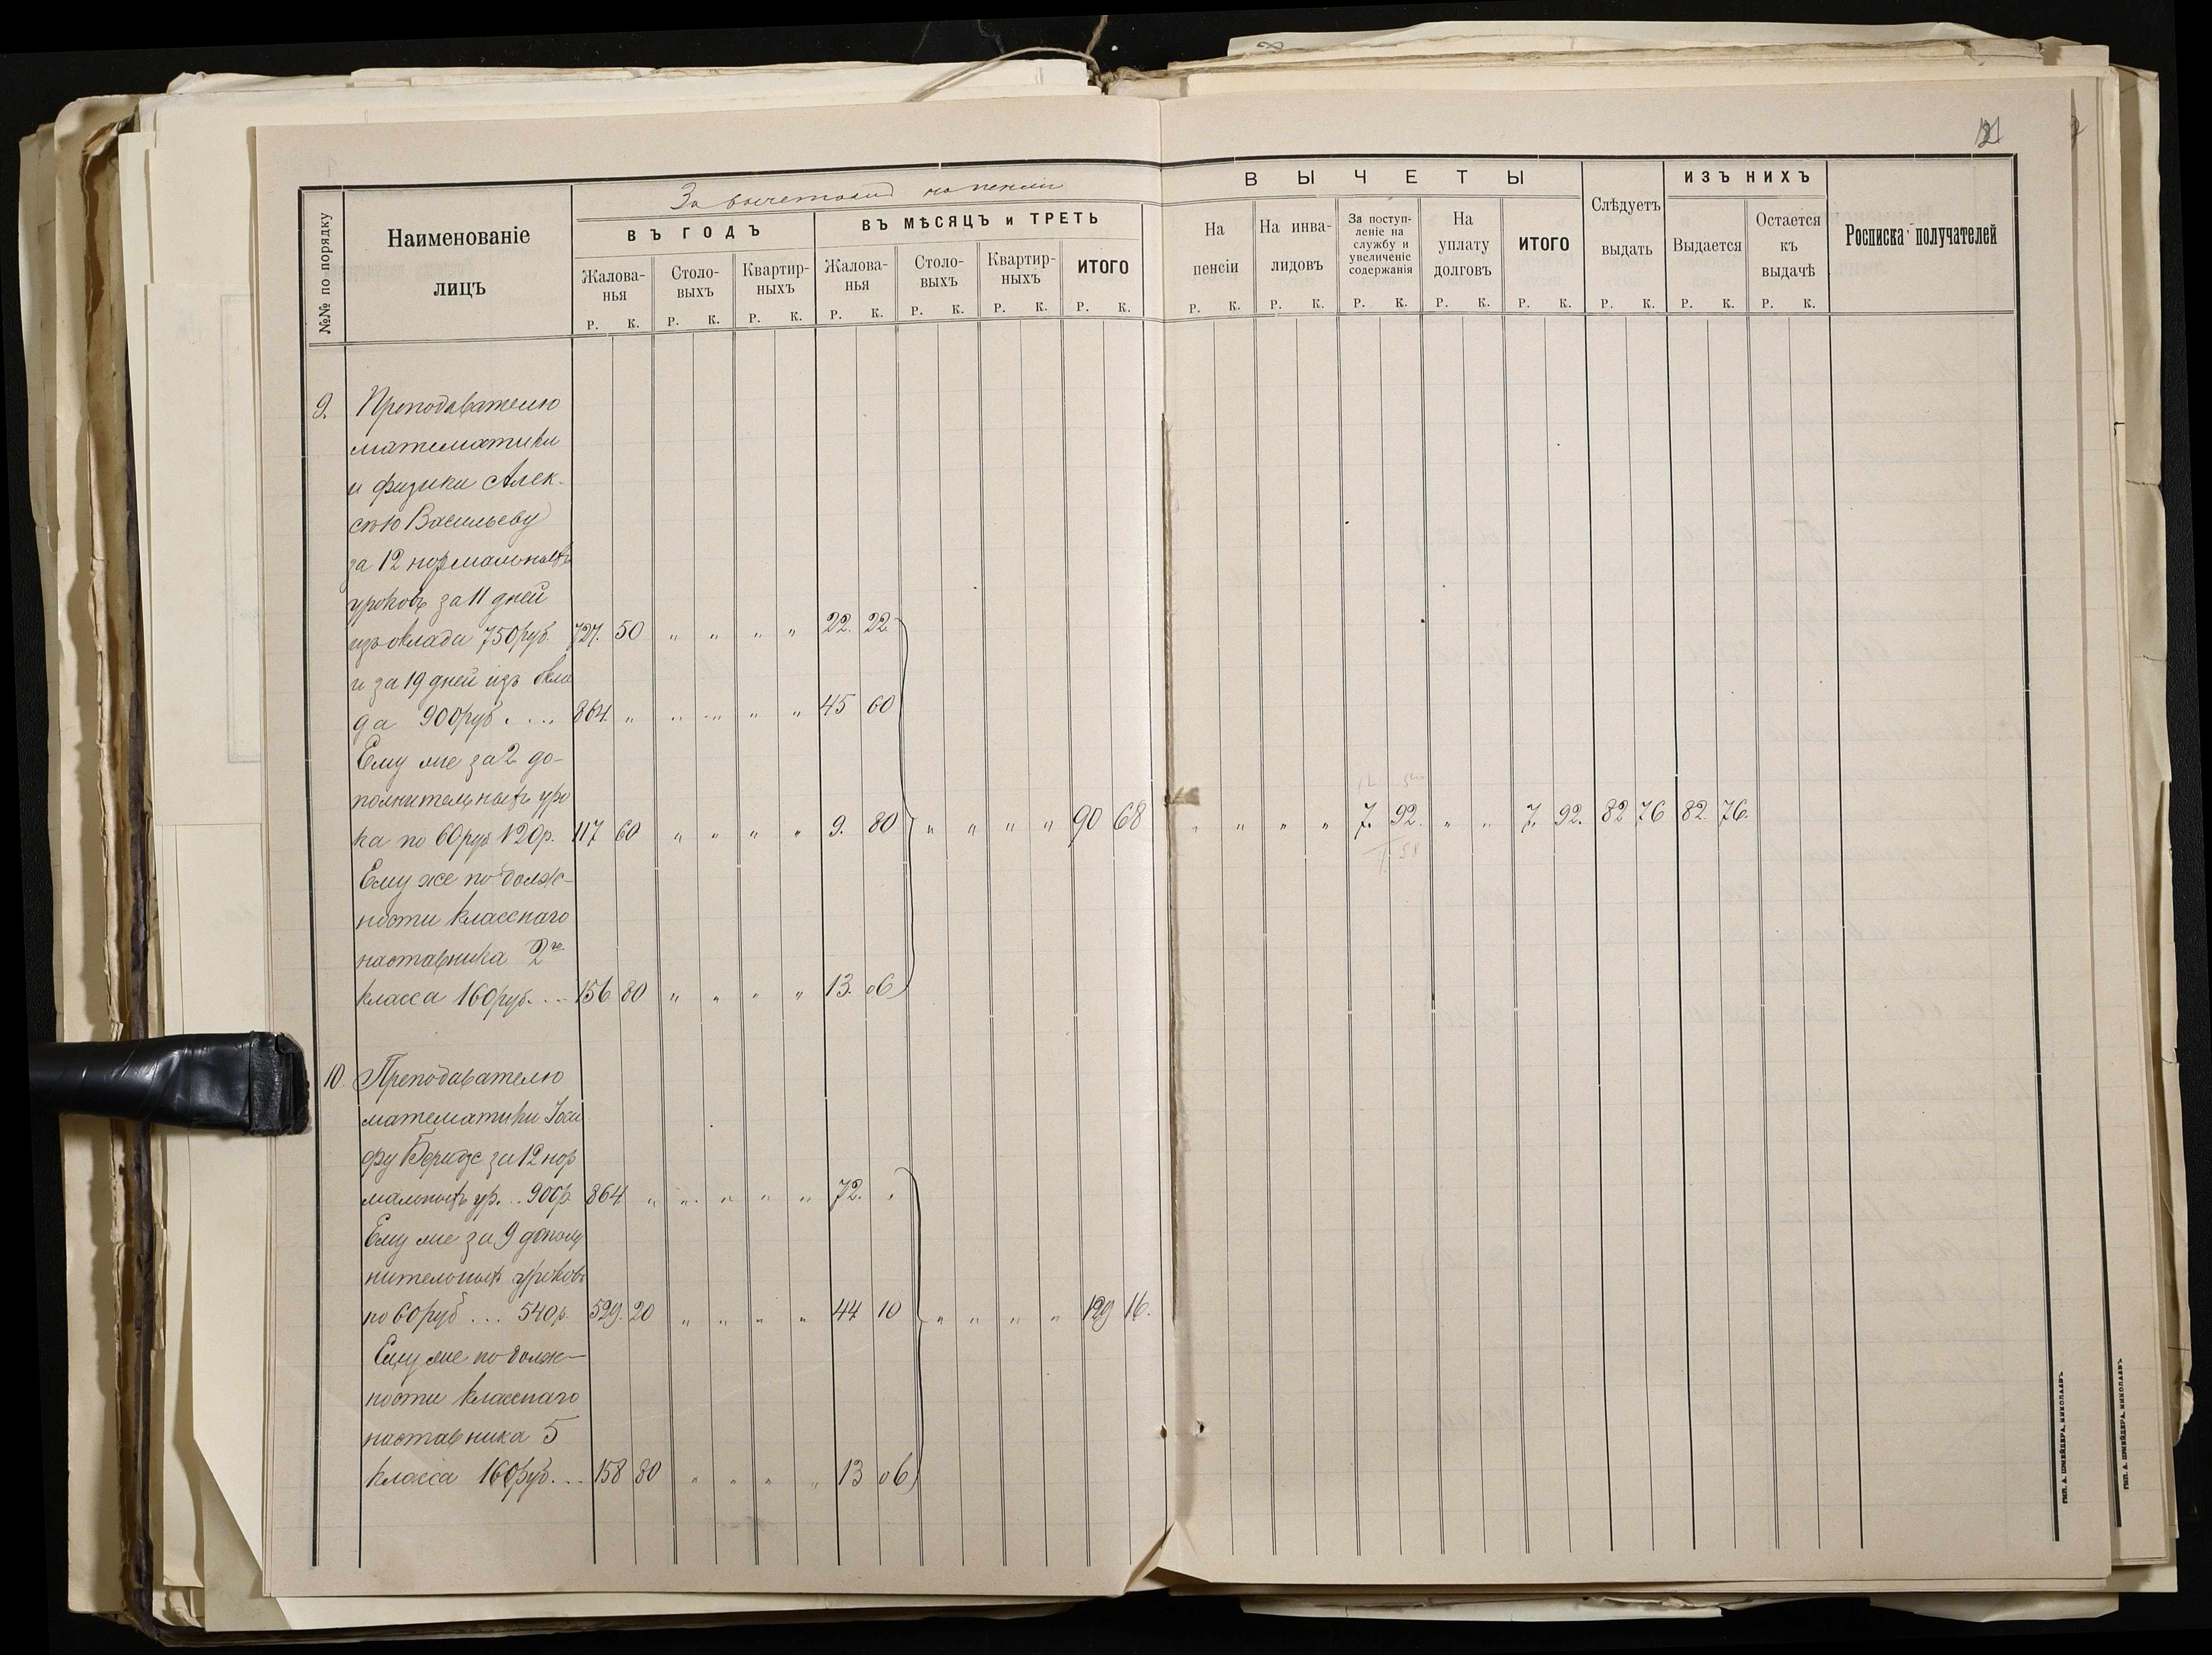 21
За вычетомъ на пенсіи
ВЫЧЕТЫ
ИЗЪ НИХЪ
№№ по порядку
Наименованіе
лицъ
ВЪ ГОДЪ
ВЪ МѢСЯЦЪ и ТРЕТЬ
Жалова-
нья
Столо-
выхъ
Квартир-
ныхъ
Жалова-
нья
Столо-
выхъ
Квартир-
ныхъ
ИТОГО
На
пенсіи
На инва-
лидовъ
За поступ-
леніе на
службу и
увеличеніе
содержанія
На
уплату
долговъ
ИТОГО
Слѣдуетъ
выдать
Выдается
Остается
къ
выдачѣ
Росписка получателей
Р. К. Р. К. Р. К. Р. К. Р. К. Р. К. Р. К. Р. К. Р. К. Р. К. Р. К. Р. К. Р. К. Р. К. Р. К.
9. Преподавателю
математики
и физики Алек-
сѣю Васильеву
за 12 нормальныхъ
уроковъ за 11 дней
изъ оклада 750 руб. 727. 50 " " " " 22. 22
и за 19 дней изъ окла
да 900 руб . . . . 864 " " " " " 45 60
Ему же за 2 до-
полнительныхъ уро
ка по 60 руб 120 р. 117 60 " " " " 9. 80 " " " " 90 68 " " " " 7. 92. " " 7. 92. 82 76 82. 76.
Ему же по долж-
ности класснаго
наставника 2го
класса 160 руб. . . . 156 80 " " " " 13. 06
10. Преподавателю
математики Іоси
фу Беридзе за 12 нор
мальныхъ ур. . . 900 р 864 " " " " " 72. "
Ему же за 9 допол
нительныхъ уроковъ
по 60 руб . . . 540 р. 529. 20 " " " " 44 10 " " " " 129 16.
Ему же по долж-
ности класснаго
наставника 5
класса 160 руб. . . 158 80 " " " " 13 06
ТИП. А. ШНЕЙДЕРА, НИКОЛАЕВЪ
ТИП. А. ШНЕЙДЕРА, НИКОЛАЕВЪ